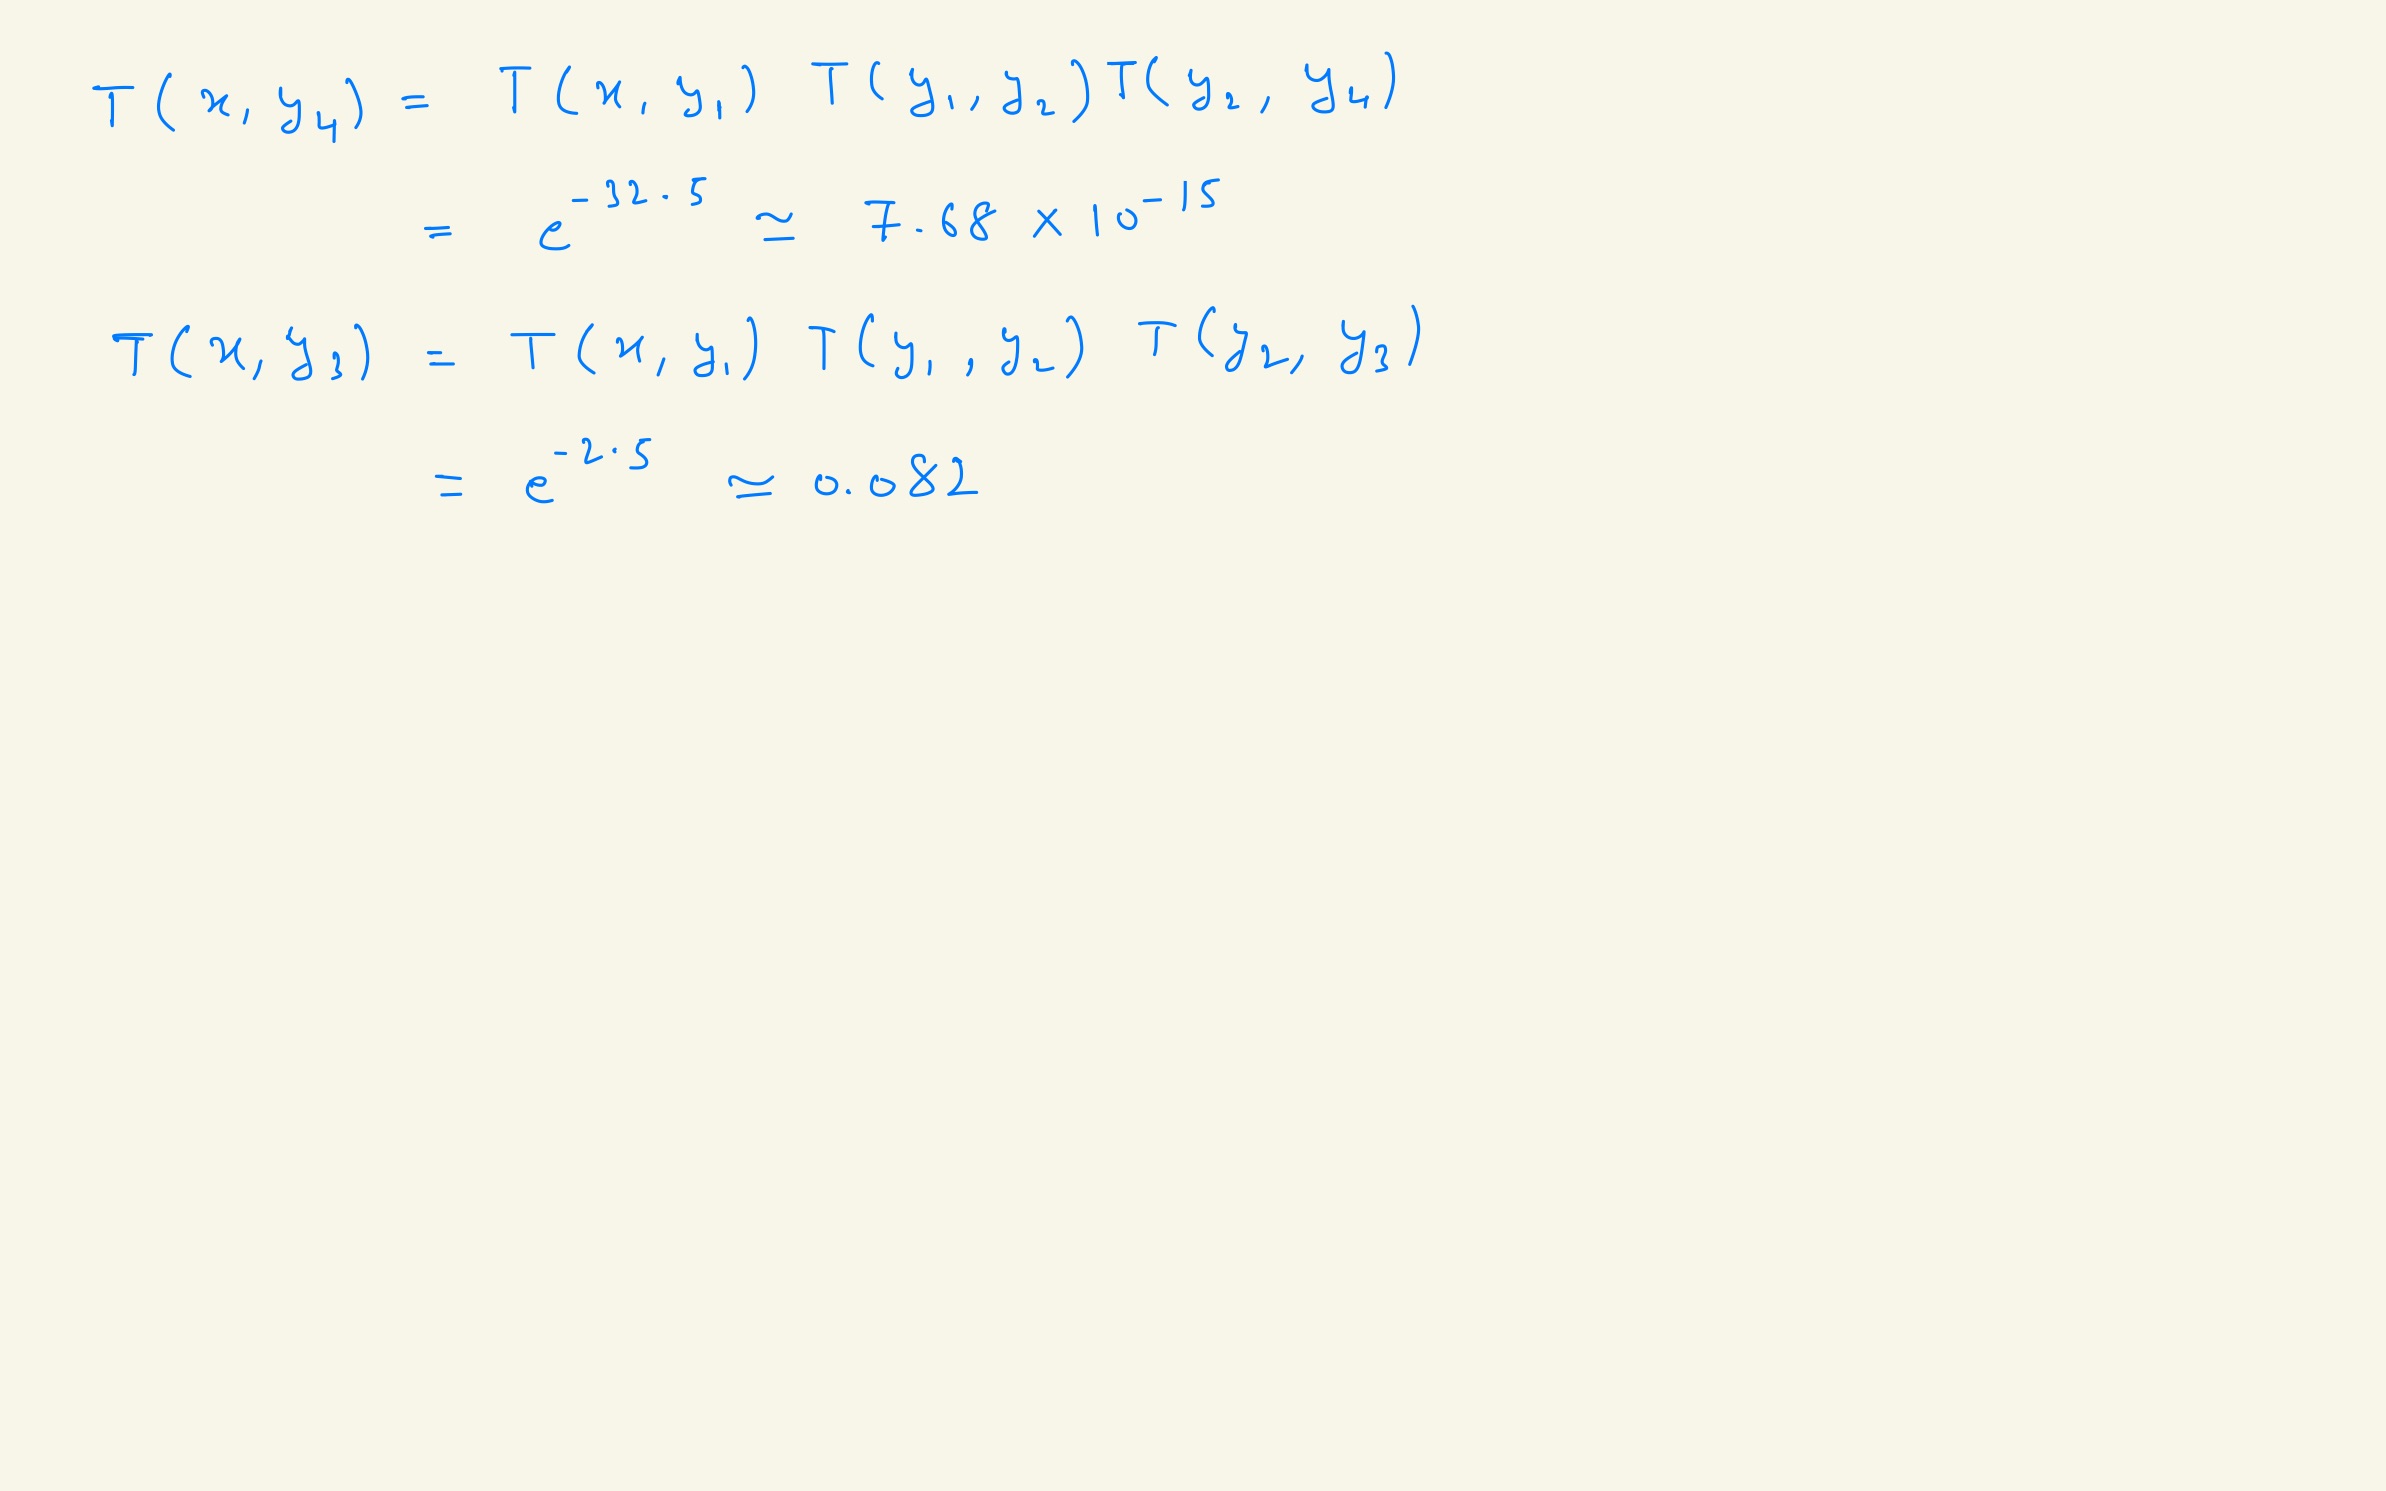 T(x, y₄) = T(x, y₁) T(y₁, y₂) T(y₂, y₄)
= e^{-32.5} ≃ 7.68 × 10^{-15}
T(x, y₃) = T(x, y₁) T(y₁, y₂) T(y₂, y₃)
= e^{-2.5} ≃ 0.082